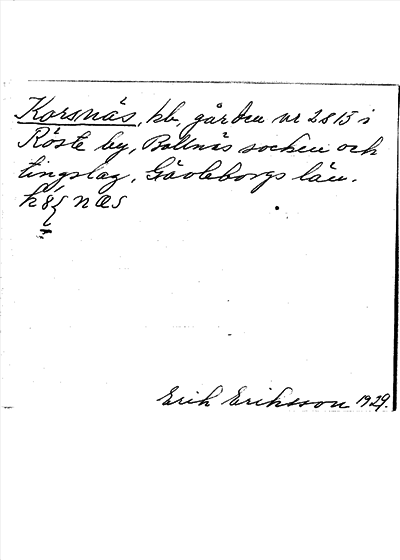 Korsnäs, hb, gården nr 2813 i
Röste by, Bollnäs socken och
tingslag, Gävleborgs län.
næs
Erik Eriksson 1929.